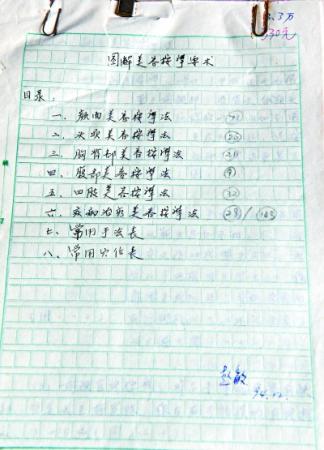 3.3万
330元
图解美容按摩学术
目录:
一、颜面美容按摩法
二、头项美容按摩法
三、胸背部美容按摩法
四、腹部美容按摩法 9
五、四肢美容按摩法
六、疾病治疗美容按摩法
七、常用手法表
八、常用穴位表
彭敏
94.12.